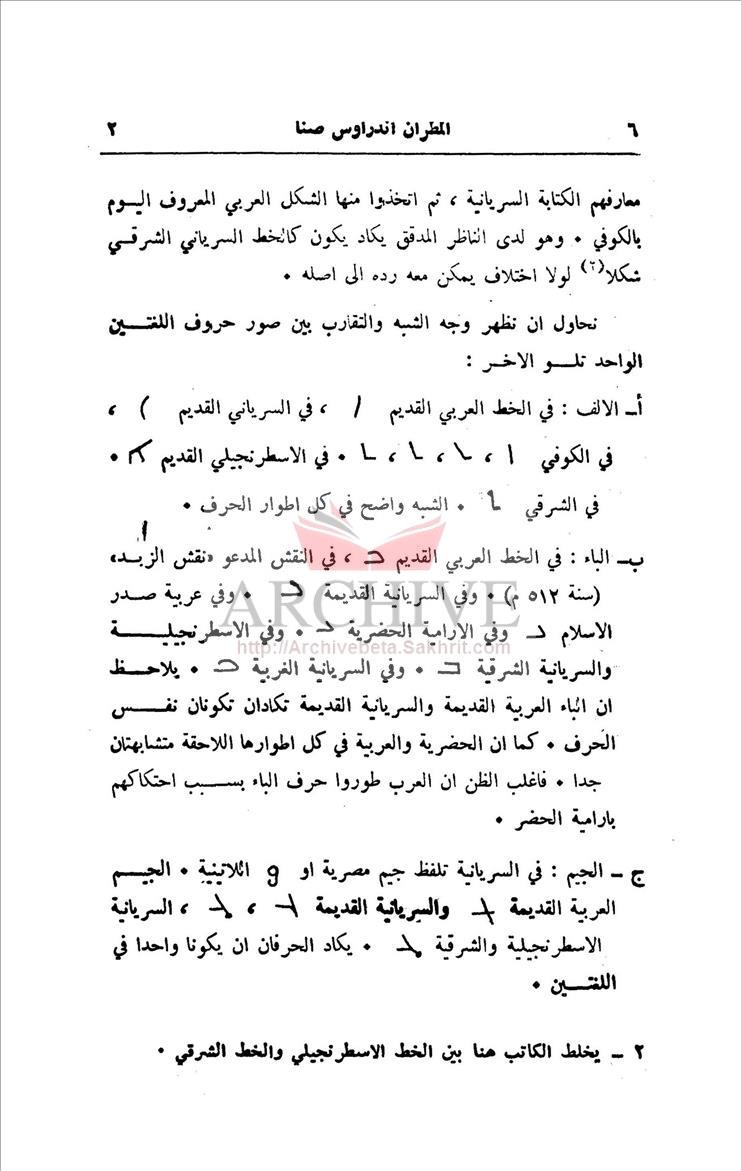 ٦ المطران اندراوس صنا ٢
معارفهم الكتابة السريانية ، ثم اتخذوا منها الشكل العربي المعروف اليـوم
بالكوفي ٠ وهو لدى الناظر المدقق يكاد يكون كالخط السرياني الشرقـي
شكلا(٢) لولا اختلاف يمكن معه رده الى اصله ٠
نحاول ان نظهر وجه الشبه والتقارب بين صور حروف اللغتـين
الواحد تلـو الاخـر :
أـ الالف : في الخط العربي القديم ، في السرياني القديم ،
في الكوفي ا ، ، ، ٠ في الاسطرنجيلي القديم ٠
في الشرقي ٠ الشبه واضح في كل اطوار الحرف ٠
ب‍ـ الباء : في الخط العربي القديم ، في النقش المدعو «نقش الزبـد»
(سنة ٥١٢ م) ٠ وفي السريانية القديمة ٠ وفي عربية صـدر
الاسلام وفي الارامية الحضرية ٠ وفي الاسطرنجيليـــة
والسريانية الشرقية ٠ وفي السريانية الغربية ٠ يلاحـظ
ان الباء العربية القديمة والسريانية القديمة تكادان تكونان نفـــس
الحرف ٠ كما ان الحضرية والعربية في كل اطوارها اللاحقة متشابهتان
جدا ٠ فاغلب الظن ان العرب طوروا حرف الباء بســـبب احتكاكهم
بارامية الحضر ٠
ج ـ الجيم : في السريانية تلفظ جيم مصرية او g اللاتينية ٠ الجيـــم
العربية القديمة والسريانية القديمة ، ، السريانية
الاسطرنجيلية والشرقية ٠ يكاد الحرفان ان يكونا واحدا في
اللغتـــين ٠
٢ ـ يخلط الكاتب هنا بين الخط الاسطرنجيلي والخط الشرقي ٠
ARCHIVE
http://Archivebeta.Sakhrit.com